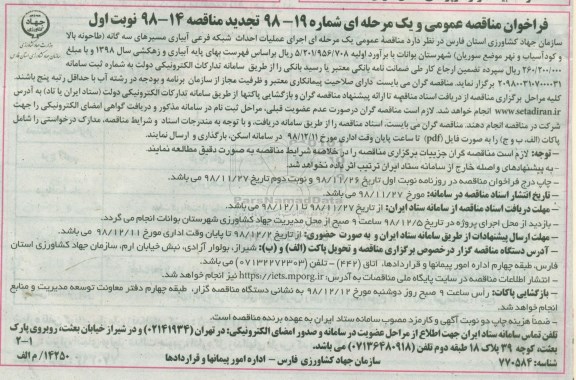 فراخوان مناقصه عمومی و یک مرحله ای شماره ۱۹-۹۸ تجدید مناقصه ۱۴-۹۸ نوبت اول
سازمان جهاد کشاورزی استان فارس در نظر دارد مناقصه عمومی یک مرحله ای اجرای عملیات احداث شبکه فرعی آبیاری مسیرهای سه گانه (طاحونه بالا
و کودآسیاب و نهر موضع سوریان) شهرستان بوانات با برآورد اولیه ۵/۲۰۱/۹۵۶/۷۰۸ ریال براساس فهرست بهای پایه آبیاری و زهکشی سال ۱۳۹۸ و با مبلغ
۲۶۰/۲۰۰/۰۰۰ ریال سپرده تضمین ارجاع کار طی ضمانت نامه بانکی معتبر یا رسید بانکی را از طریق سامانه تدارکات الکترونیکی دولت به شماره ثبت سامانه
۲۰۹۸۰۰۳۱۰۷۰۰۰۰۳۱ برگزار نماید. مناقصه گران می بایست دارای صلاحیت پیمانکاری معتبر و ظرفیت مجاز از سازمان برنامه و بودجه در رشته آب با حداقل رتبه پنج باشند.
کلیه مراحل برگزاری مناقصه از دریافت اسناد مناقصه تا ارائه پیشنهاد مناقصه گران و بازگشایی پاکتها از طریق سامانه تدارکات الکترونیکی دولت (ستاد ایران یا ناد) به آدرس
www.setadiran.ir انجام خواهد شد. لازم است مناقصه گران درصورت عدم عضویت قبلی، مراحل ثبت نام در سامانه مذکور و دریافت گواهی امضای الکترونیکی را جهت
شرکت در مناقصه انجام دهند. مناقصه گران می بایست، اسناد مناقصه را از طریق سامانه دریافت، و با توجه به مندرجات اسناد و شرایط مناقصه، مدارک درخواستی را شامل
پاکات (الف، ب و ج) را به صورت فایل (pdf) تا ساعت پایان وقت اداری مورخ ۹۸/۱۲/۱۱ در سامانه اسکن، بارگذاری و ارسال نمایند.
- توجه: لازم است مناقصه گران جزییات برگزاری مناقصه را در خلاصه شرایط مناقصه به صورت دقیق مطالعه نمایند.
- به پیشنهادهای واصله خارج از سامانه ستاد ایران ترتیب اثر داده نخواهد شد.
- چاپ درج فراخوان مناقصه در روزنامه نوبت اول تاریخ ۹۸/۱۱/۲۶ و نوبت دوم تاریخ ۹۸/۱۱/۲۷ می باشد.
- تاریخ انتشار اسناد مناقصه در سامانه: مورخ ۹۸/۱۱/۲۷ می باشد.
- مهلت دریافت اسناد مناقصه از سامانه ستاد ایران: از تاریخ ۹۸/۱۱/۲۷ تا ۹۸/۱۲/۱ می باشد.
- بازدید از محل اجرای پروژه در تاریخ ۹۸/۱۲/۵ ساعت ۹ صبح از محل مدیریت جهاد کشاورزی شهرستان بوانات انجام می گردد.
- مهلت ارسال پیشنهادات از طریق سامانه ستاد ایران و به صورت حضوری: از تاریخ ۹۸/۱۲/۲ تا پایان وقت اداری مورخ ۹۸/۱۲/۱۱ می باشد.
- آدرس دستگاه مناقصه گزار در خصوص برگزاری مناقصه و تحویل پاکت (الف) و (ب): شیراز، بولوار آزادی، نبش خیابان ارم، سازمان جهاد کشاورزی استان
فارس، طبقه چهارم اداره امور پیمانها و قراردادها، اتاق (۴۴۲) - تلفن (۰۷۱۳۲۲۷۲۳۰۳) می باشد.
- انتشار اطلاعات مناقصه در سایت پایگاه ملی مناقصات به آدرس: https://iets.mporg.ir نیز انجام خواهد شد.
- بازگشایی پاکات: راس ساعت ۹ صبح روز دوشنبه مورخ ۹۸/۱۲/۱۲ به نشانی دستگاه مناقصه گزار، طبقه چهارم دفتر معاونت توسعه مدیریت و منابع
انجام خواهد شد.
- ضمنا هزینه چاپ دو نوبت آگهی و کارمزد مصوب سامانه ستاد ایران به عهده برنده مناقصه است.
تلفن تماس سامانه ستاد ایران جهت اطلاع از مراحل عضویت در سامانه و صدور امضای الکترونیکی: در تهران (۰۲۱۴۱۹۳۴) و در شیراز خیابان بعثت، روبروی پارک
بعثت، کوچه ۳۹ پلاک ۱۸ طبقه دوم تلفن (۰۷۱۳۶۴۸۰۹۱۸) می باشد.
۲-۱
شناسه: ۷۷۰۵۸۴
سازمان جهاد کشاورزی فارس - اداره امور پیمانها و قراردادها
۱۴۲۵۰/م الف